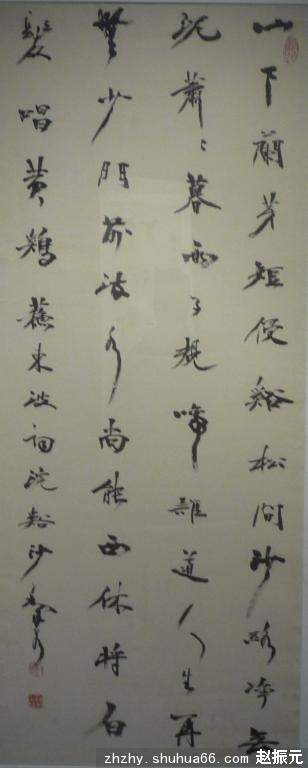 山下蘭芽短侵谿松间沙路净無
泥蕭〻暮雨子規啼誰道人生再
無少門前流水尚能西休将白
髮唱黄鷄蘇東坡词浣谿沙
zhzhy.shuhua66.com 赵振元